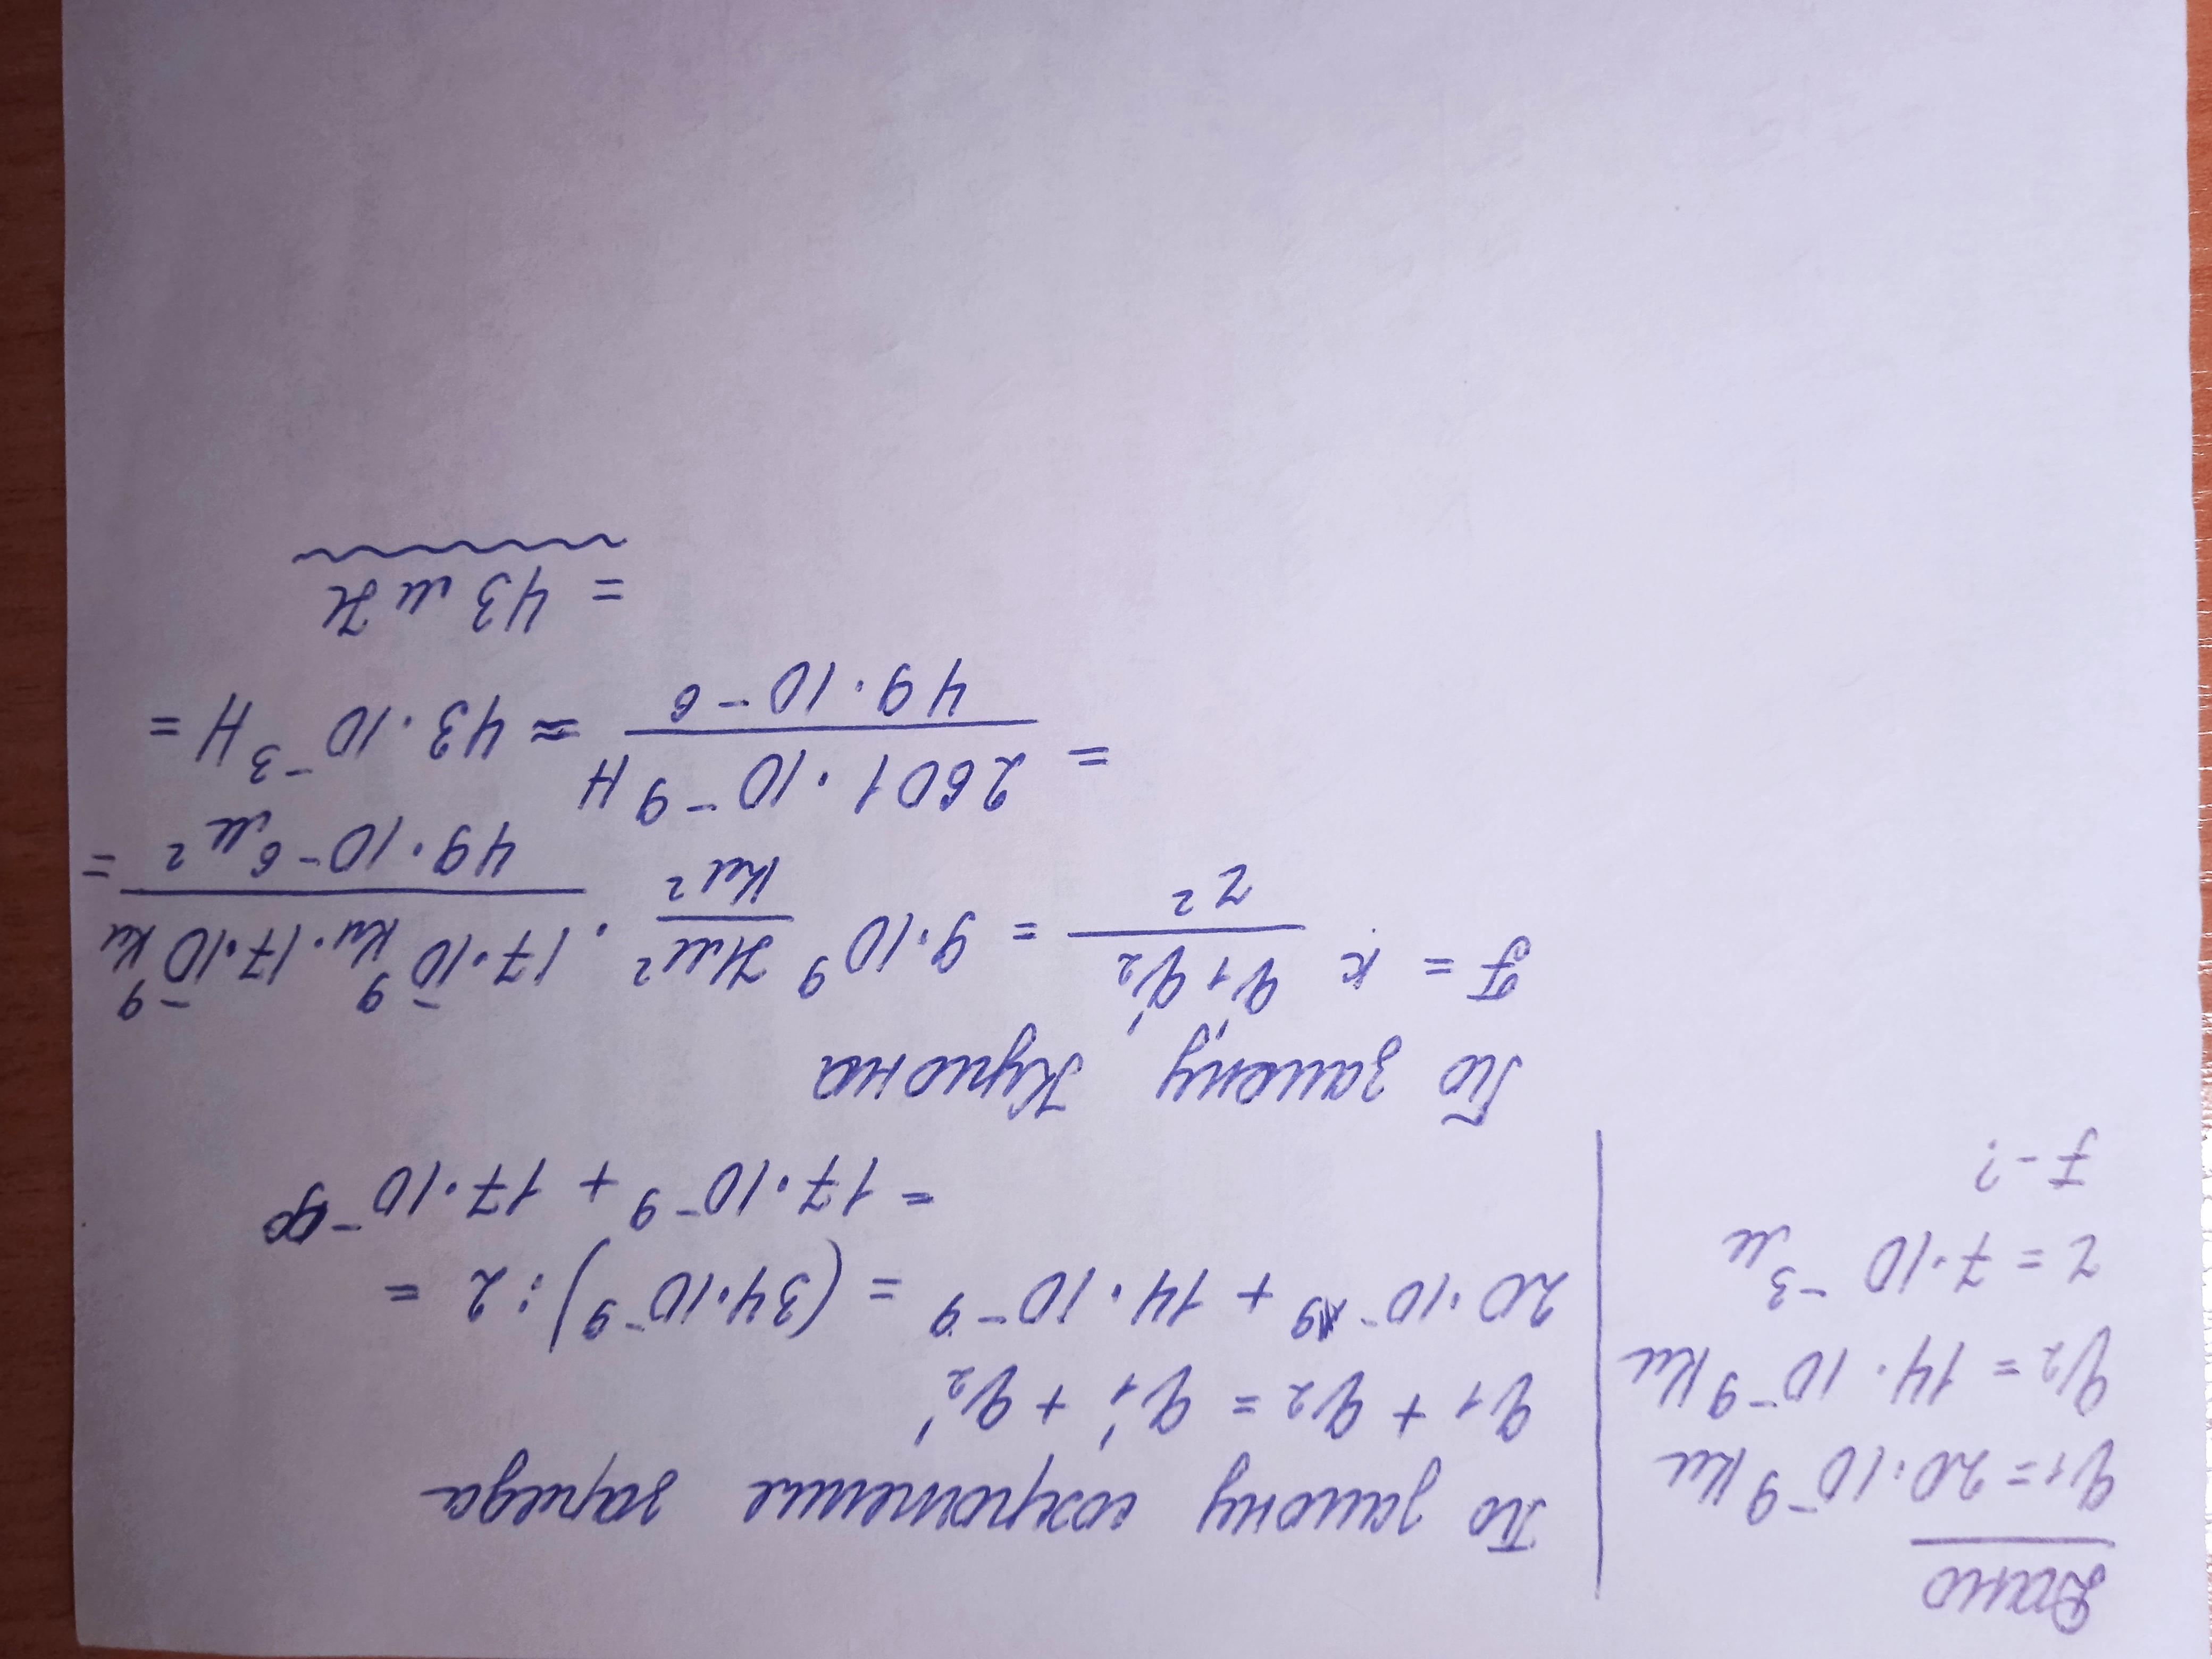 Дано
q₁ = 20·10⁻⁹ Кл
q₂ = 14·10⁻⁹ Кл
r = 7·10⁻³ м
F - ?
По закону сохранение заряда
q₁ + q₂ = q₁' + q₂'
20·10⁻⁹ + 14·10⁻⁹ = (34·10⁻⁹) : 2 =
= 17·10⁻⁹ + 17·10⁻⁹
По закону Кулона
F = к q₁'q₂' / r² = 9·10⁹ Нм²/Кл² · 17·10⁻⁹ Кл · 17·10⁻⁹ Кл / 49·10⁻⁶ м² =
= 2601·10⁻⁹ Н / 49·10⁻⁶ ≈ 43·10⁻³ Н =
= 43 мН